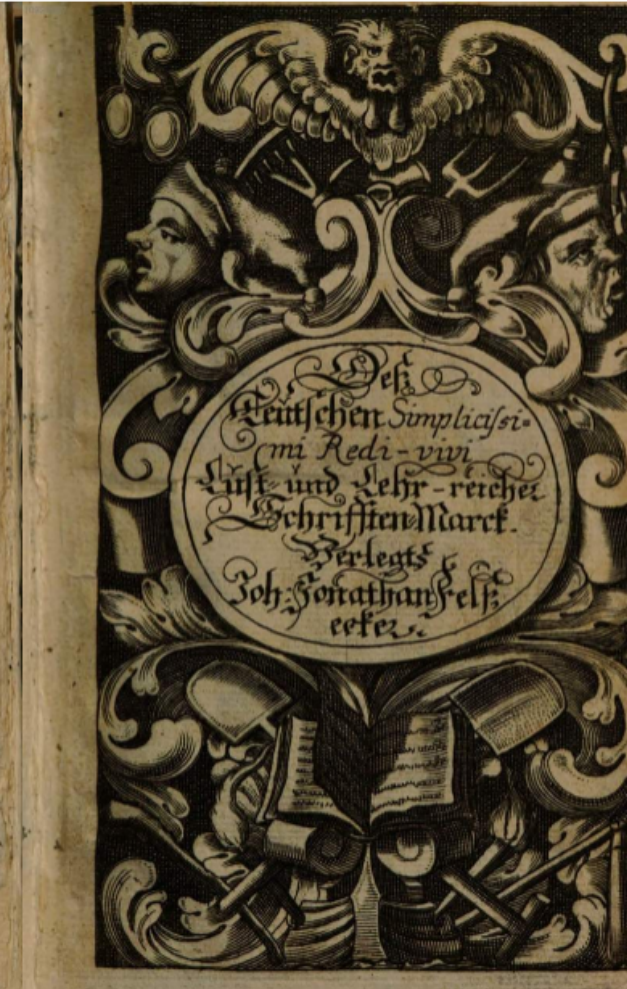 Deß
Teutschen Simplicissi-
mi Redi-vivi
Lust- und Lehr-reicher
Schrifften-Marck.
Verlegts
Joh: Jonathan Felß
ecker.